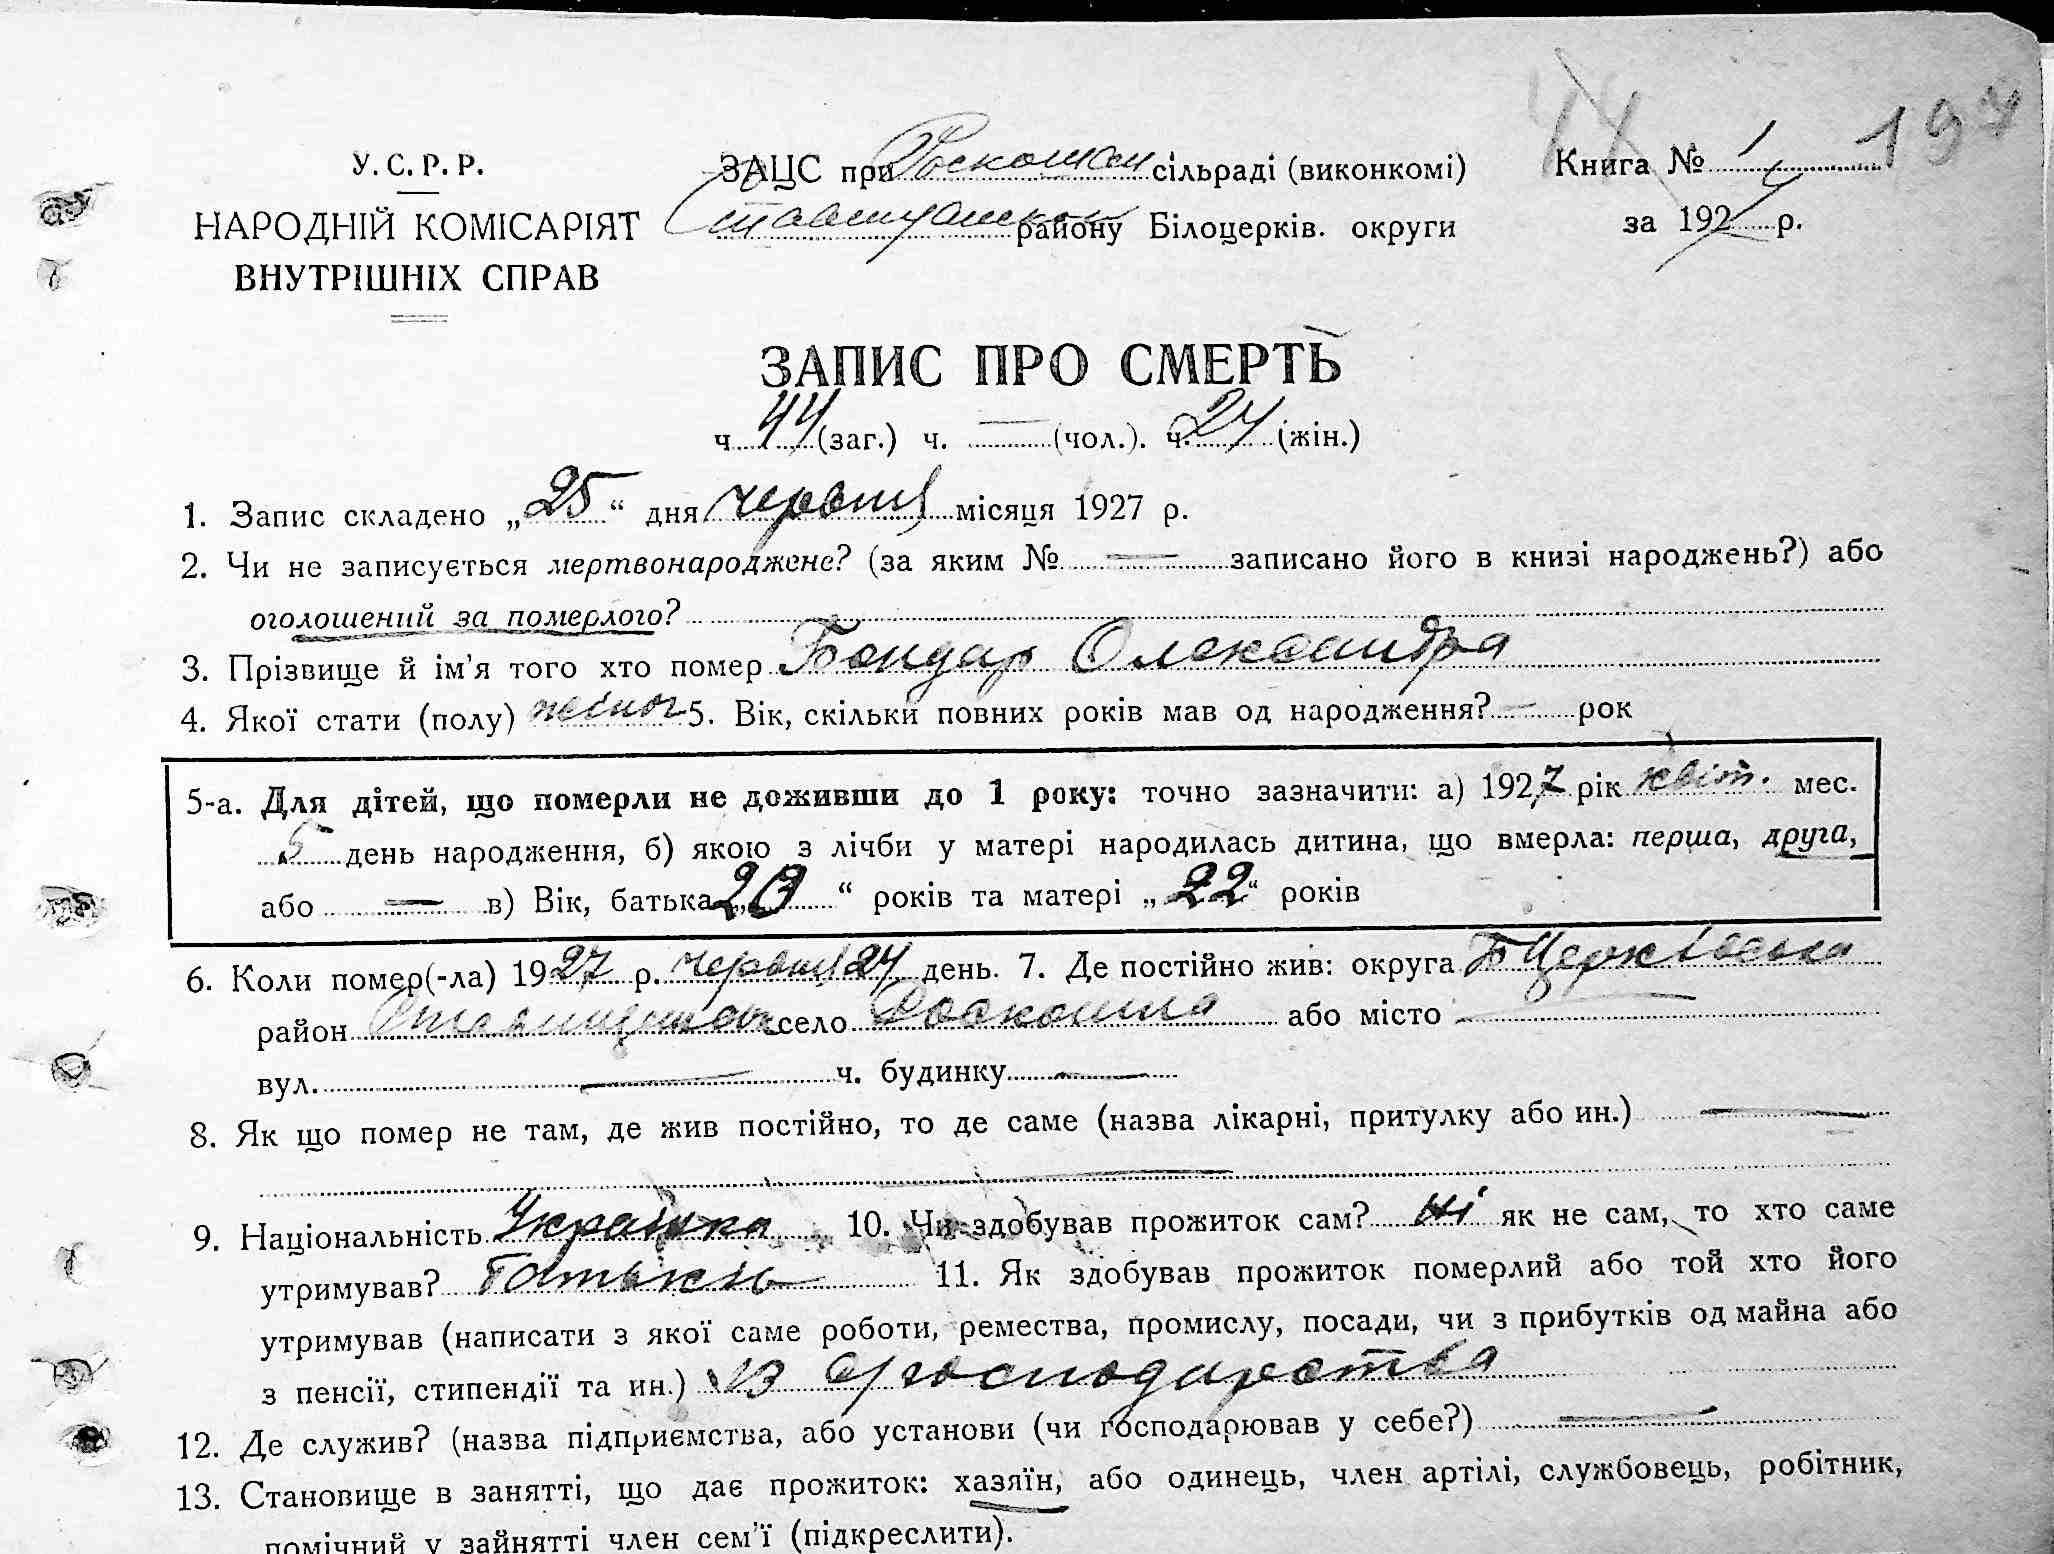 У.С.Р.Р.
НАРОДНІЙ КОМІСАРІЯТ
ВНУТРІШНІХ СПРАВ
ЗАЦС при Роскошськ сільраді (виконкомі)
Ставищанськ району Білоцерків. округи
Книга № 1
за 1927 р.
44
ЗАПИС ПРО СМЕРТЬ
ч. 44 (заг.) ч. — (чол.). ч. 24 (жін.)
1. Запис складено „25“ дня червня місяця 1927 р.
2. Чи не записується мертвонароджене? (за яким № — записано його в книзі народжень?) або
оголошений за померлого?
3. Прізвище й ім'я того хто помер Бондар Олександра
4. Якої стати (полу) жіноч 5. Вік, скільки повних років мав од народження? — рок
5-а. Для дітей, що померли не доживши до 1 року: точно зазначити: а) 1927 рік квіт. мес.
5 день народження, б) якою з лічби у матері народилась дитина, що вмерла: перша, друга,
або — в) Вік, батька „23“ років та матері „22“ років
6. Коли помер(-ла) 1927 р. червня 24 день. 7. Де постійно жив: округа БЦерківська
район Ставищанськ село Роскошна або місто —
вул. — ч. будинку —
8. Як що помер не там, де жив постійно, то де саме (назва лікарні, притулку або ин.) —
9. Національність Українка 10. Чи здобував прожиток сам? Ні як не сам, то хто саме
утримував? Батьки 11. Як здобував прожиток померлий або той хто його
утримував (написати з якої саме роботи, ремества, промислу, посади, чи з прибутків од майна або
з пенсії, стипендії та ин.) Із с/господарства
12. Де служив? (назва підприємства, або установи (чи господарював у себе?) —
13. Становище в занятті, що дає прожиток: хазяїн, або одинець, член артілі, службовець, робітник,
помічний у зайнятті член сем'ї (підкреслити).